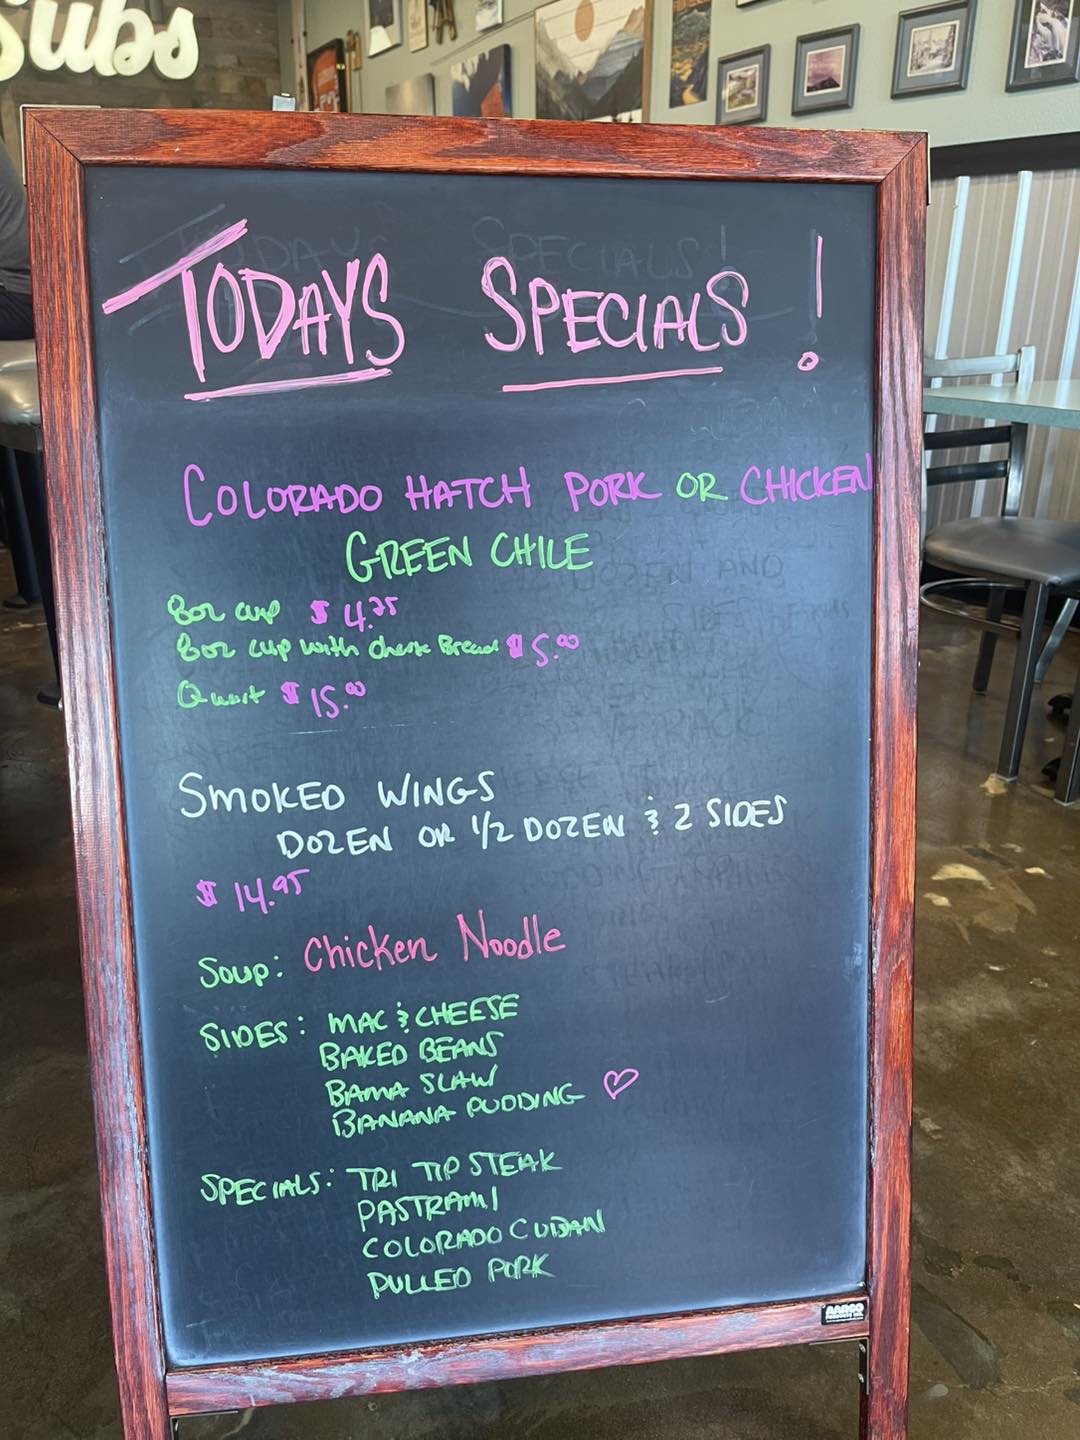 Subs
TODAYS SPECIALS!
COLORADO HATCH PORK OR CHICKEN
GREEN CHILE
8oz cup $4.25
8oz cup with cheese Bread $5.00
Quart $15.00
SMOKED WINGS
DOZEN OR 1/2 DOZEN & 2 SIDES
$14.95
Soup: Chicken Noodle
SIDES: MAC & CHEESE
BAKED BEANS
BAMA SLAW
BANANA PUDDING ♡
SPECIALS: TRI TIP STEAK
PASTRAMI
COLORADO CUBAN
PULLED PORK
AARCO